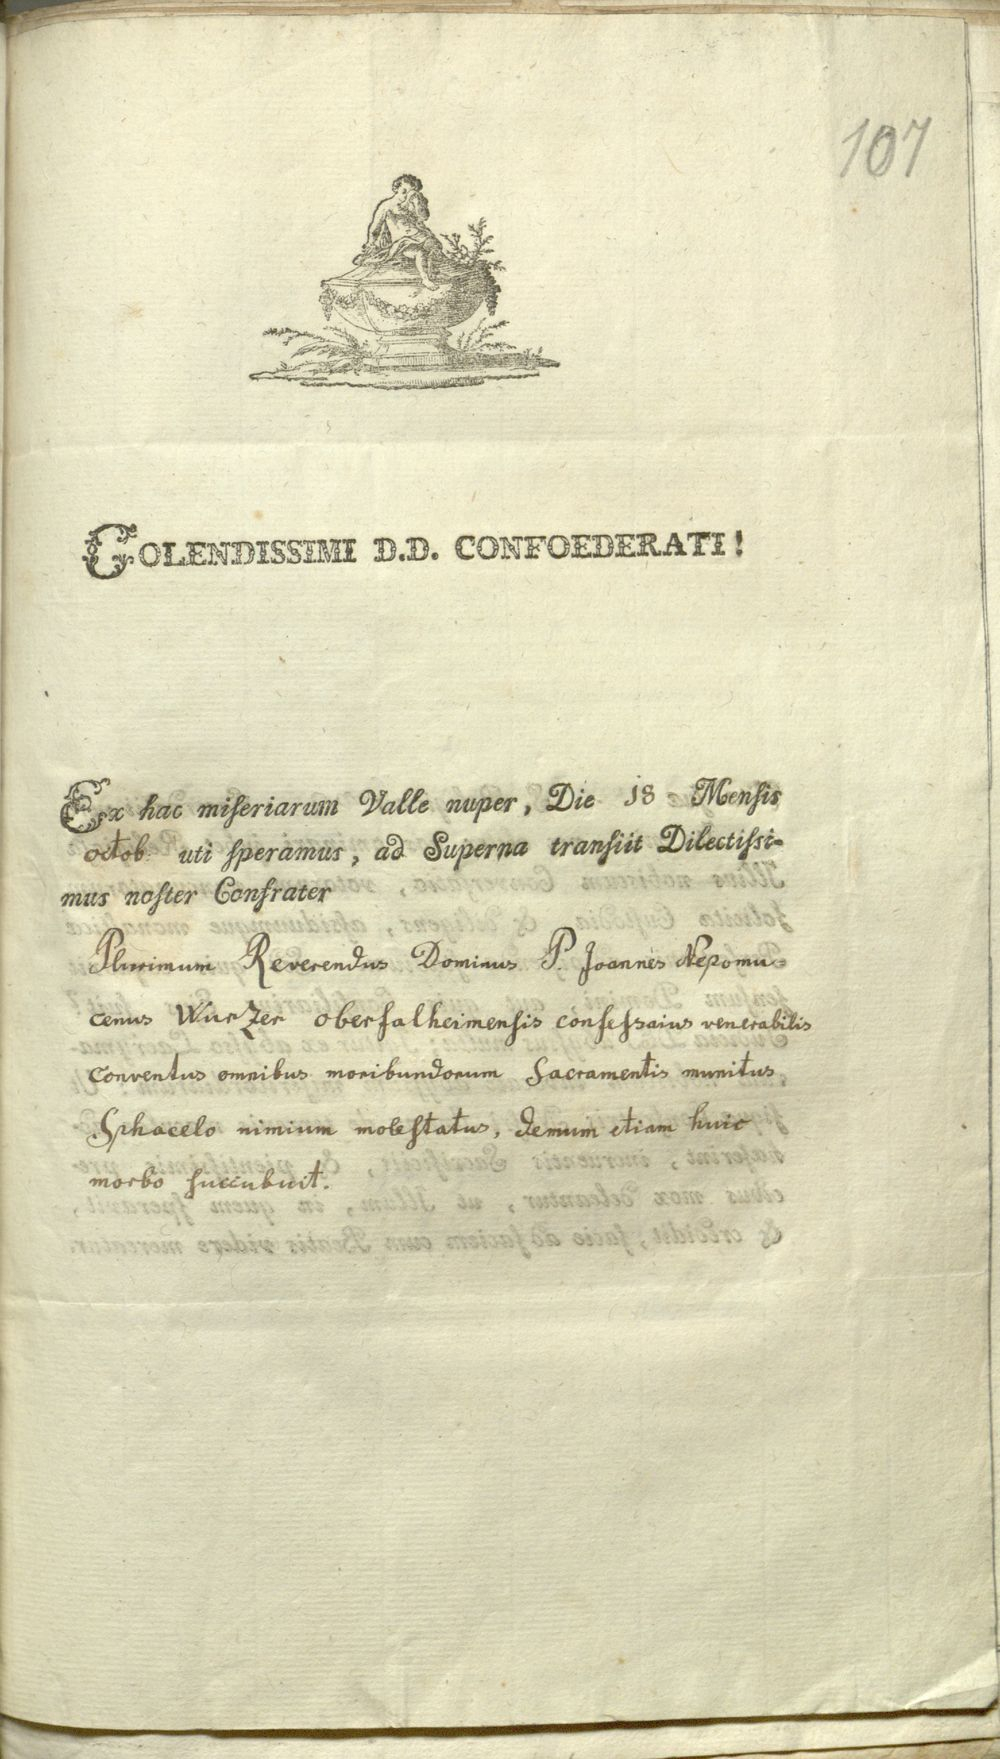 107
COLENDISSIMI D.D. CONFOEDERATI!
Ex hac miseriarum Valle nuper, Die 18 Mensis
octob. uti speramus, ad Superna transiit Dilectissi-
mus noster Confrater
Plurimum Reverendus Dominus P. Joannes Nepomu-
cenus Wurzer oberfalheimensis confessaius venerabilis
conventus omnibus moribundorum Sacramentis munitus
Sphacelo nimium molestatus, demum etiam huic
morbo succubuit.